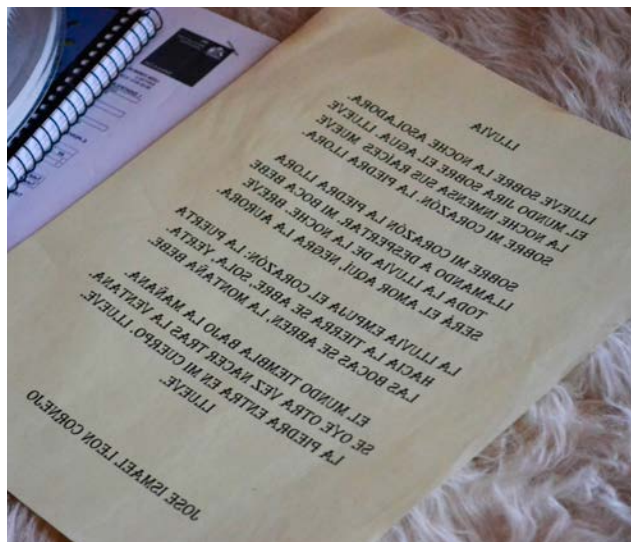 LLUVIA
LLUEVE SOBRE LA NOCHE ASOLADORA.
EL MUNDO JIRA SOBRE EL AGUA. LLUEVE
LA NOCHE INMENSA SUS RAÍCES MUEVE
SOBRE MI CORAZÓN, LA PIEDRA LLORA.
SOBRE MI CORAZÓN LA PIEDRA LLORA
LLAMANDO A DESPERTAR. MI BOCA BEBE
TODA LA LLUVIA DE LA NOCHE. BREVE
SERÁ EL AMOR AQUÍ, NEGRA LA AURORA.
LA LLUVIA EMPUJA EL CORAZÓN: LA PUERTA
HACIA LA TIERRA SE ABRE, SOLA, YERTA.
LAS BOCAS SE ABREN, LA MONTAÑA BEBE.
EL MUNDO TIEMBLA BAJO LA MAÑANA.
SE OYE OTRA VEZ NACER TRAS LA VENTANA.
LA PIEDRA ENTRA EN MI CUERPO. LLUEVE.
LLUEVE.
JOSE ISMAEL LEON CORNEJO